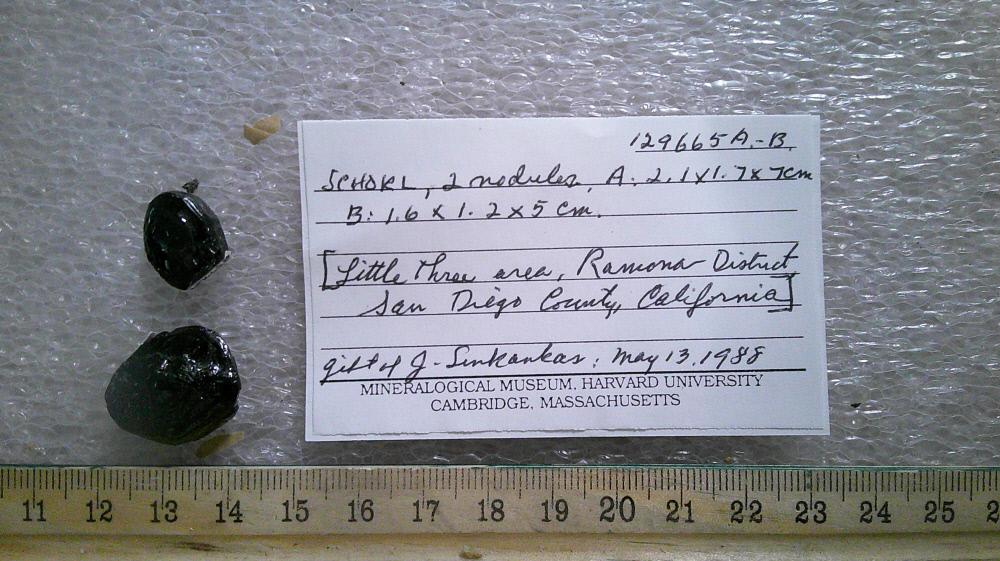 129665 A.-B.
SCHORL, 2 nodules, A: 2.1x1.7x7cm
B: 1.6 x 1.2 x 5 cm.
[Little Three area, Ramona District
San Diego County, California]
gift of J. Sinkankas: May 13, 1988
MINERALOGICAL MUSEUM, HARVARD UNIVERSITY
CAMBRIDGE, MASSACHUSETTS
11 12 13 14 15 16 17 18 19 20 21 22 23 24 25 2